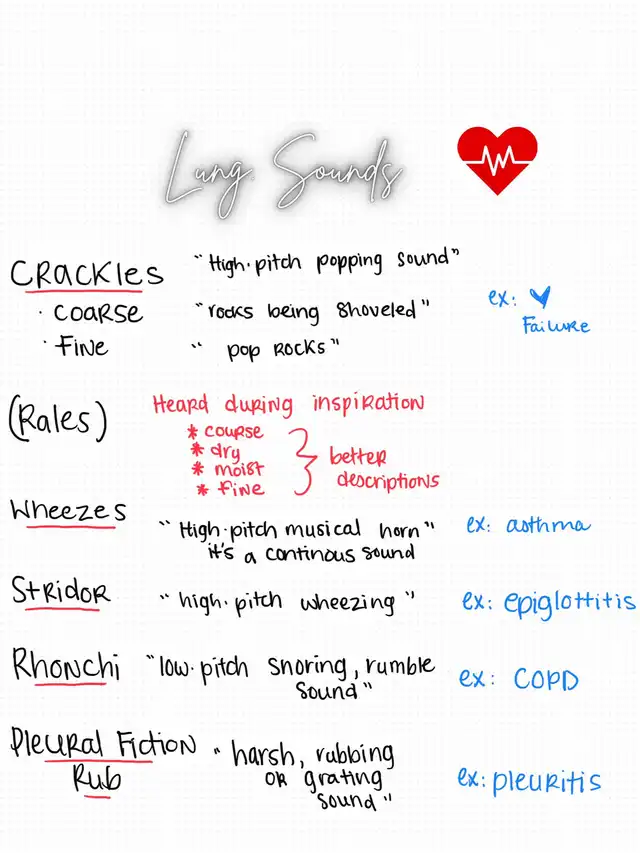 Lung Sounds
Crackles
"High-pitch popping sound"
· coarse
"rocks being shoveled"
· fine
"pop rocks"
ex: ♥
Failure
(Rales)
Heard during inspiration
* course
* dry
* moist
* fine
better
descriptions
Wheezes
"High-pitch musical horn"
it's a continous sound
ex: asthma
Stridor
"high-pitch wheezing"
ex: epiglottitis
Rhonchi
"low-pitch snoring, rumble
sound"
ex: COPD
Pleural Fiction
Rub
"harsh, rubbing
or grating
sound"
ex: pleuritis